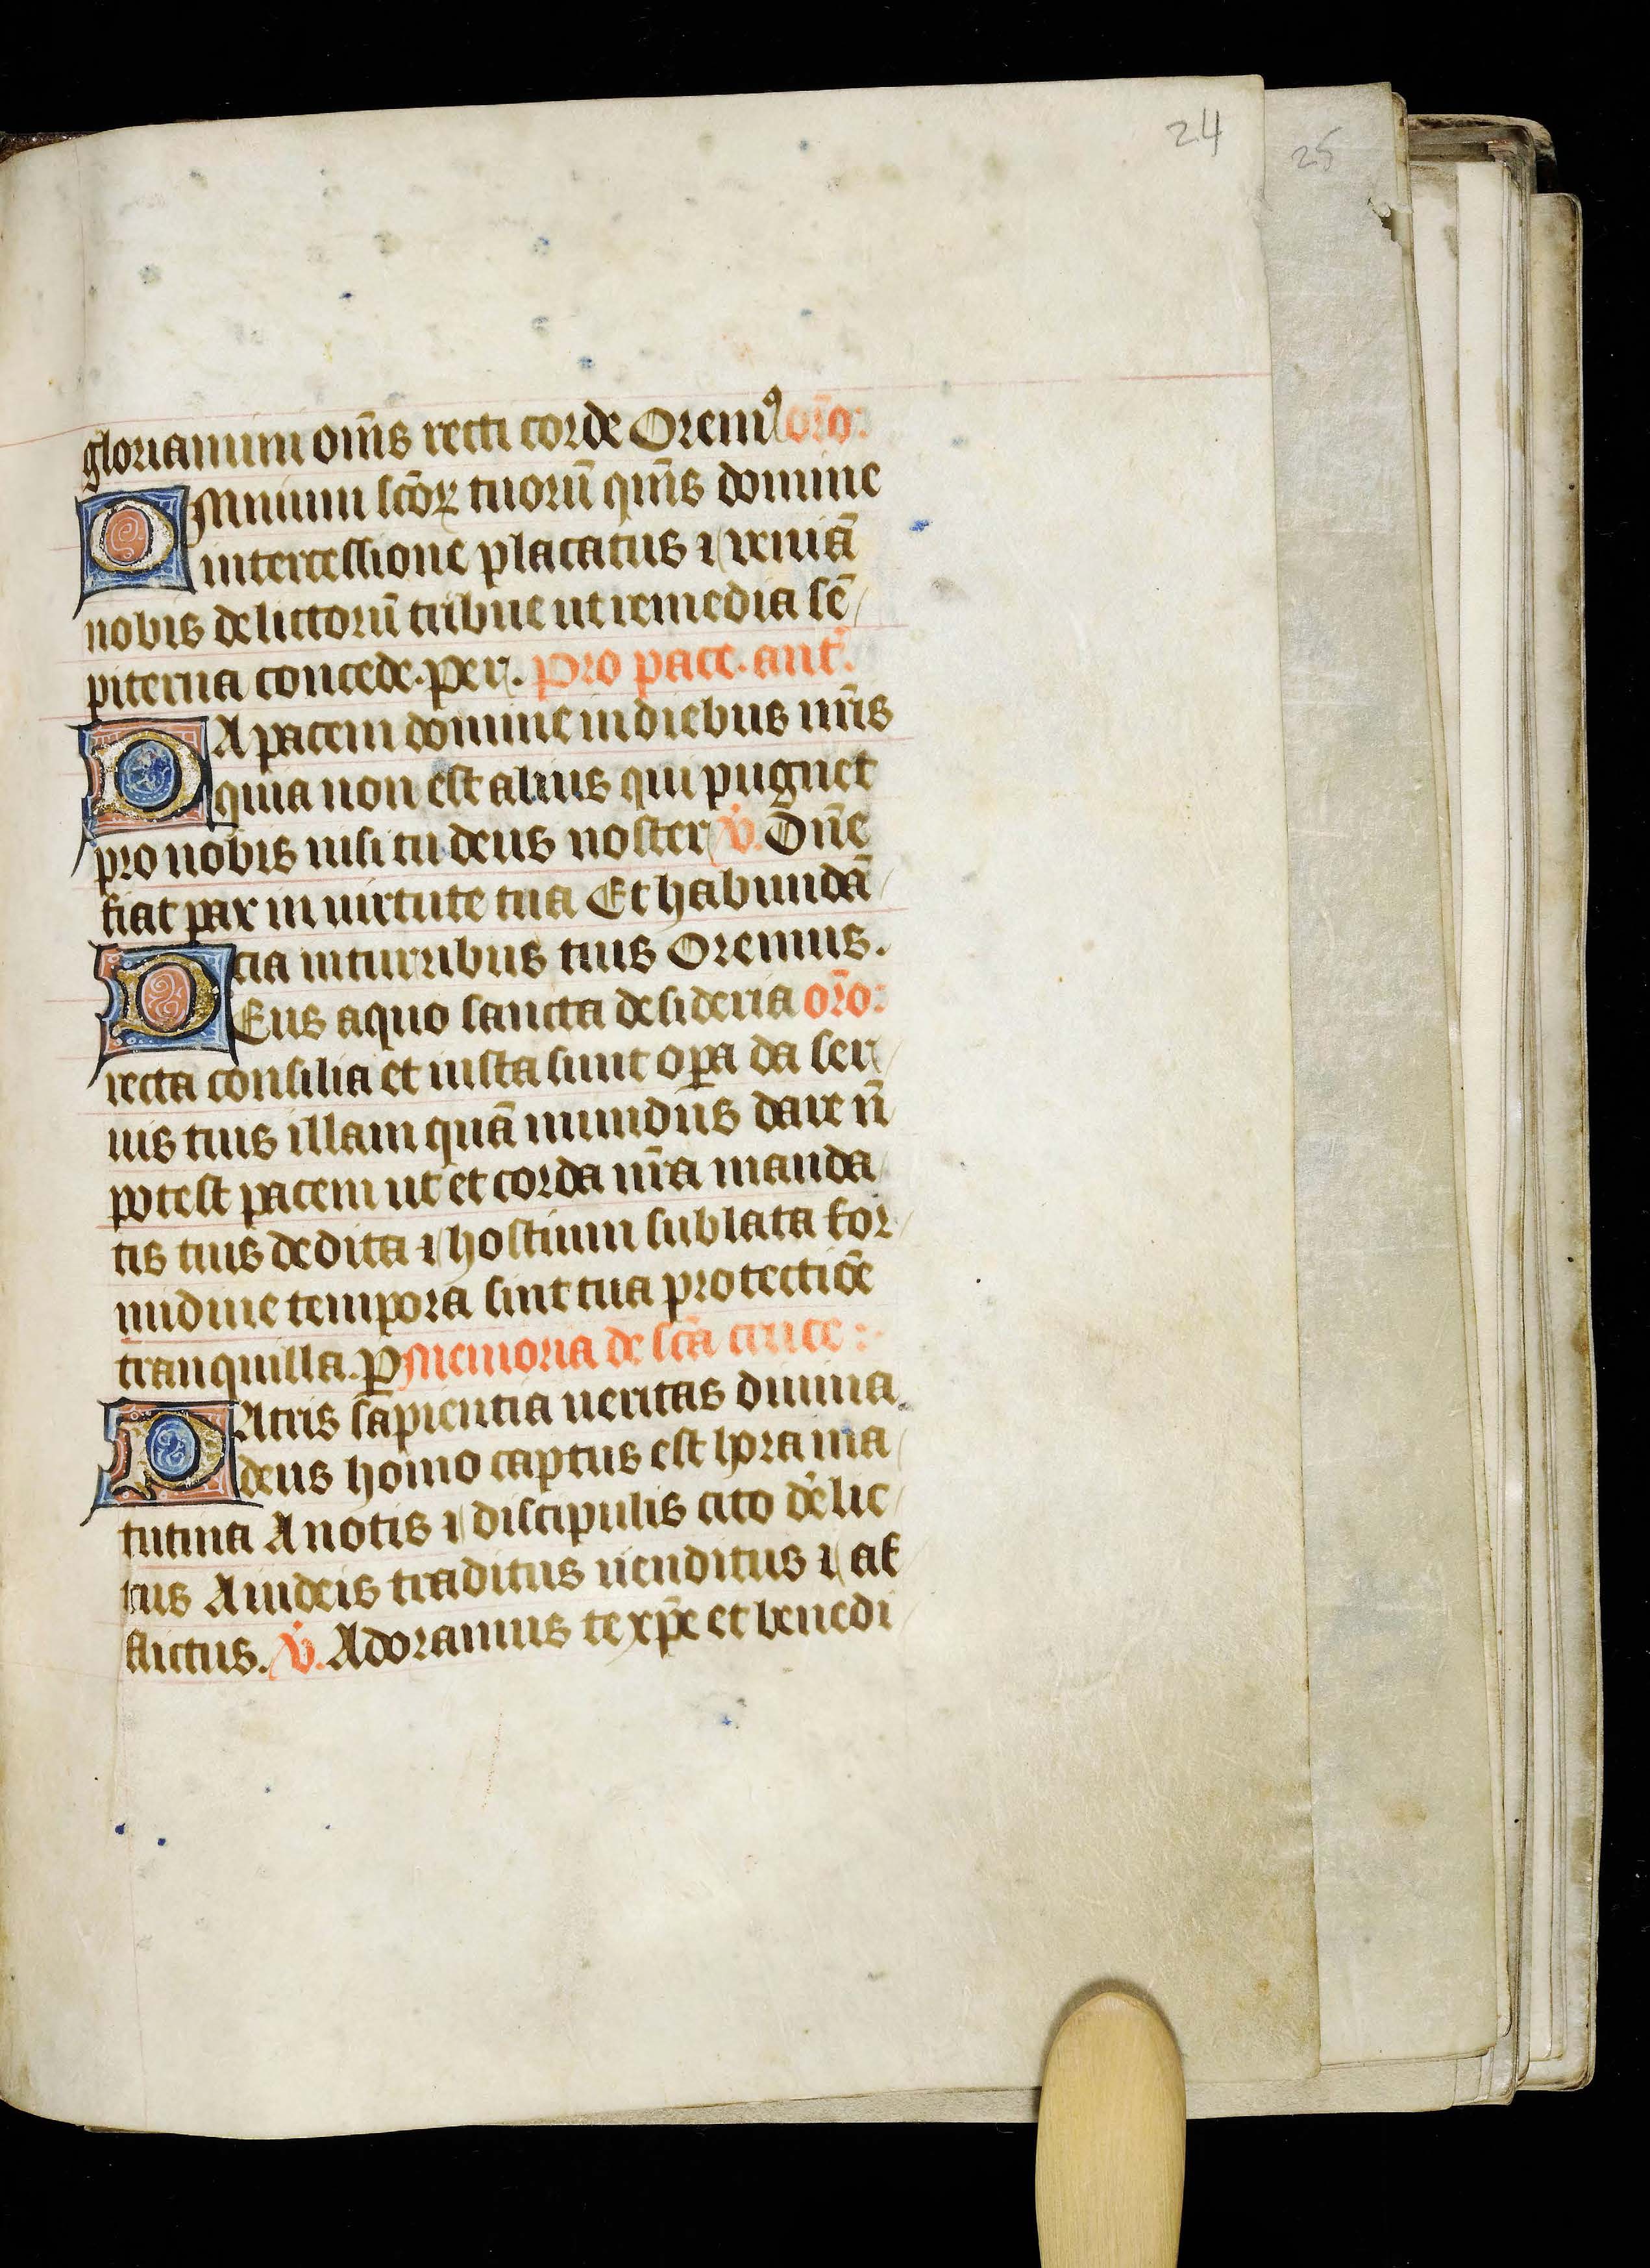 24
25
gloriamini om̄s recti corde Oremꝰ or̄o:
OMnium sc̄oꝝ tuorū qm̄s domine
intercessione placatus ⁊ veniā
nobis delictorū tribue ut remedia sē
piterna concede. per. Pro pace. ant̄.
DA pacem domine in diebus nr̄is
quia non est alius qui pugnet
pro nobis nisi tu deus noster ℣. Dn̄e
fiat pax in virtute tua Et habundā
cia in turribus tuis Oremus.
DEus a quo sancta desideria or̄o:
recta consilia et iusta sunt oꝑa da ser
uis tuis illam quā mundus dare n̄
potest pacem ut et corda nr̄a manda
tis tuis dedita ⁊ hostium sublata for
midine tempora sint tua protectiōe
tranquilla. ꝑ Memoria de sc̄a cruce :
PAtris sapientia ueritas diuina
deus homo captus est hora ma
tutina A notis ⁊ discipulis cito delic
tus A iudeis traditus uenditus ⁊ af
flictus. ℣. Adoramus te xp̄e et benedi